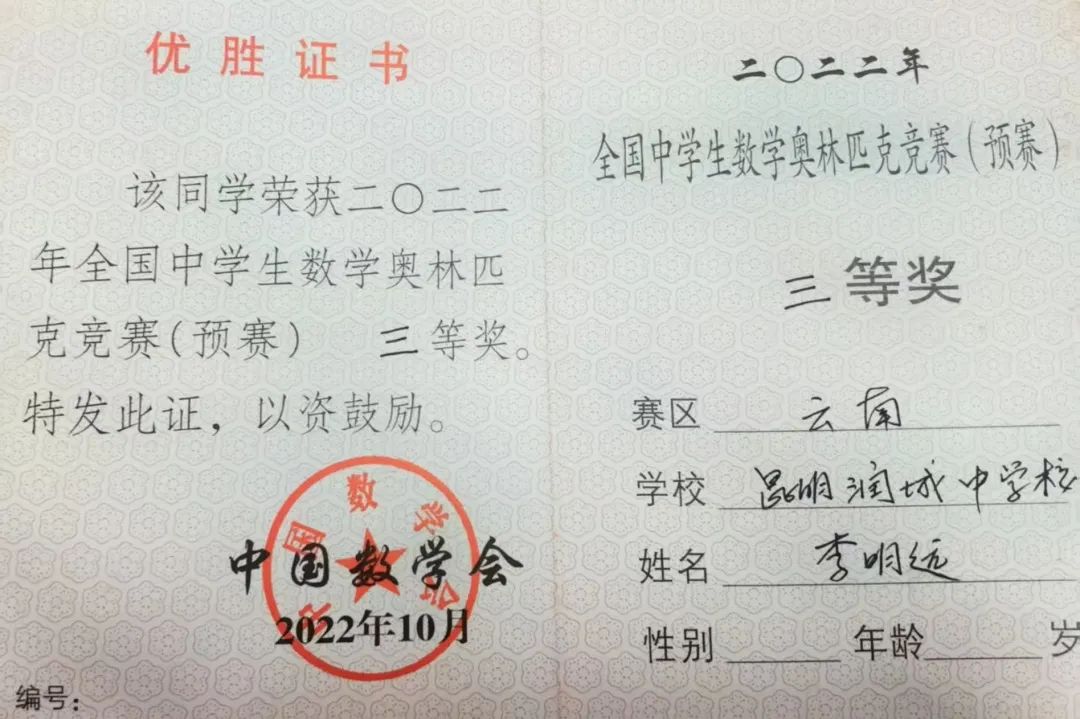 优胜证书
该同学荣获二〇二二
年全国中学生数学奥林匹
克竞赛(预赛) 三等奖。
特发此证，以资鼓励。
中国数学会
中国数学会
2022年10月
编号：
二〇二二年
全国中学生数学奥林匹克竞赛(预赛)
三等奖
赛区 云南
学校 昆明润城中学校
姓名 李明远
性别 年龄 岁